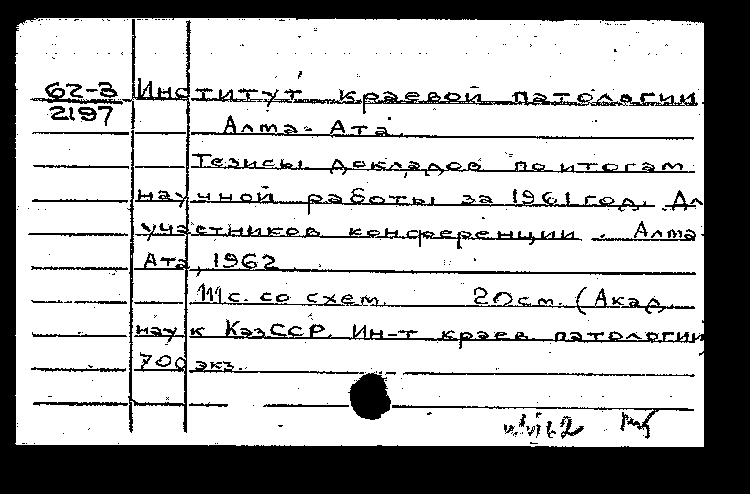 62-3 Институт краевой патологии.
2197
Алма-Ата.
Тезисы докладов по итогам
научной работы за 1961 год. Дл
участников конференции. Алма-
Ата, 1962
111 с. со схем. 20 см. (Акад.
наук КазССР. Ин-т краев. патологии)
700 экз.